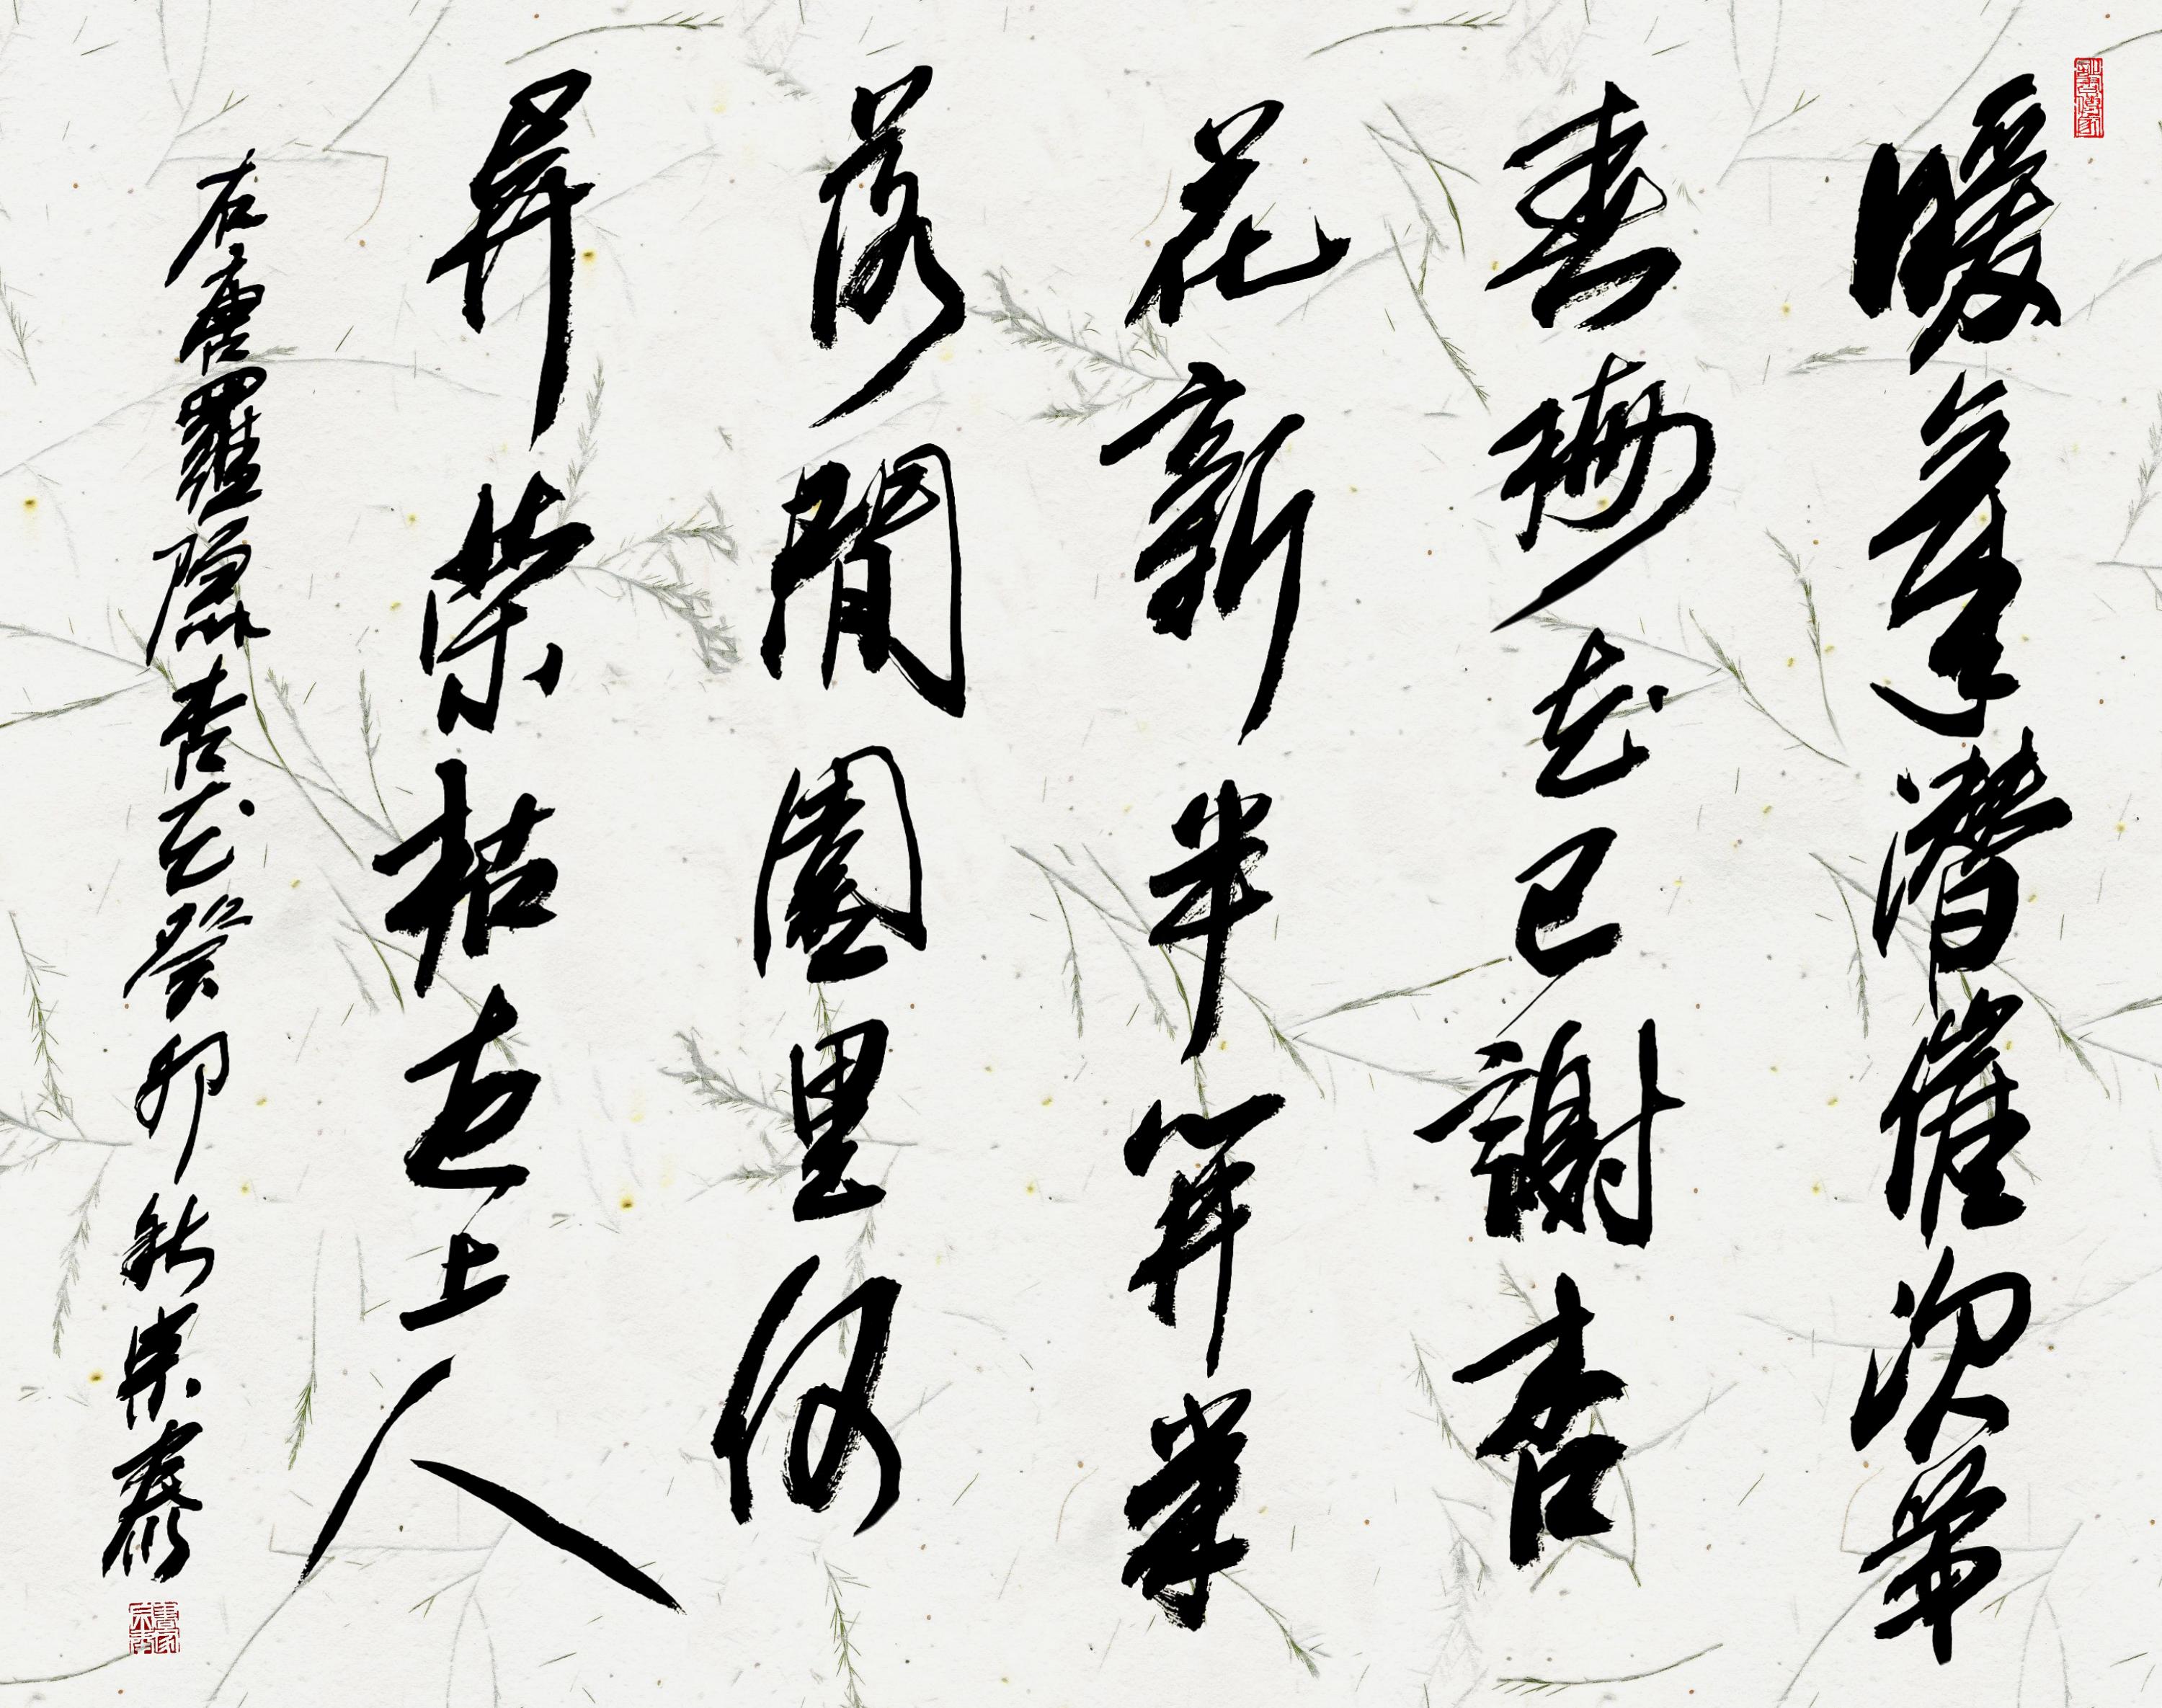 暖氣潛催次第
春梅花已謝杏
花新半开半
落閒園里何
異榮枯世上人
右唐羅隱杏花癸卯秋宗泰